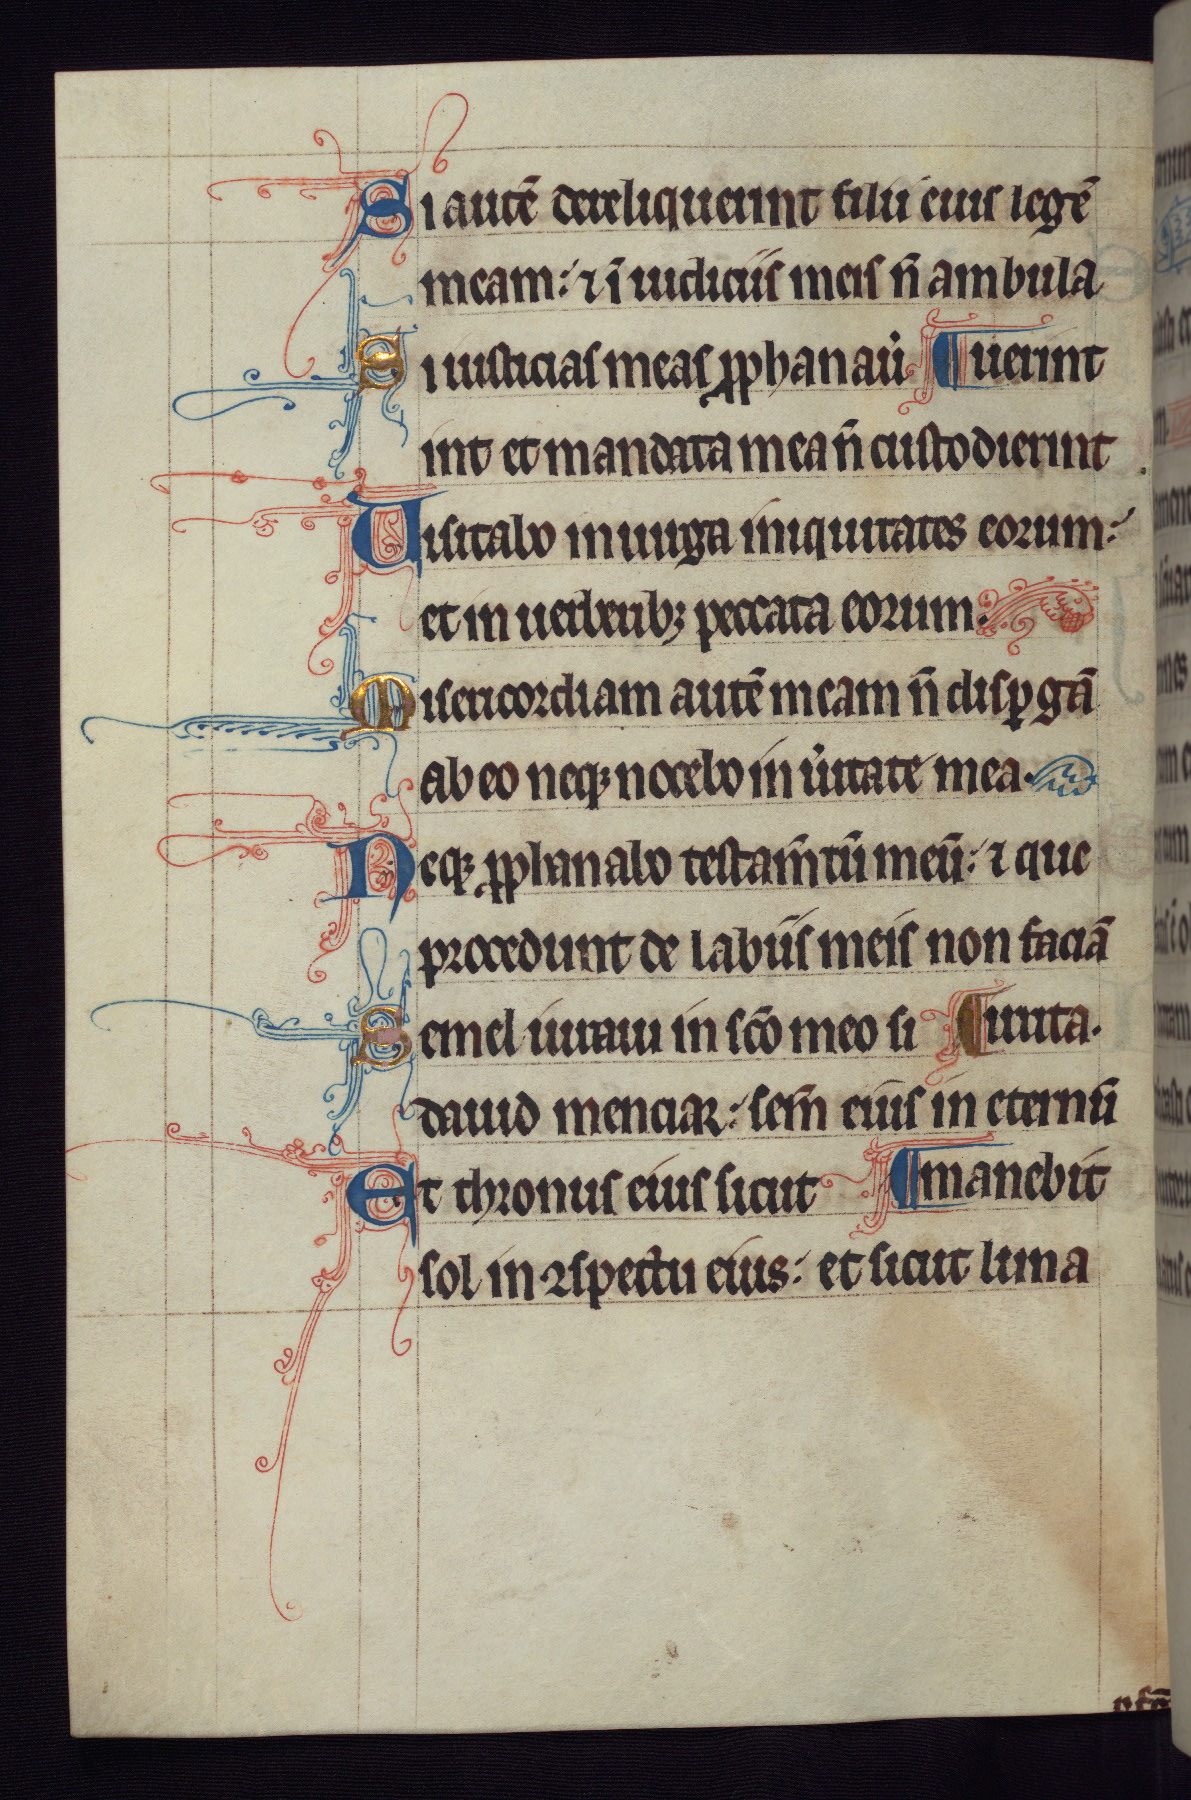 Si autē dereliquerint filii eius legē
meam: ⁊ ī iudiciis meis ñ ambula
Si iusticias meas ꝓphanaũ ¶ uerint
int et mandata mea ñ custodierint
Uisitabo in uirga iniquitates eorum:
et in uerberibꝫ peccata eorum.
Misericordiam autē meam ñ disꝑgā
ab eo neqꝫ nocebo in ũitate mea.
Neqꝫ ꝓphanabo testam̄tū meū: ⁊ que
procedunt de labiis meis non faciā
Semel iuraui in scō meo si ¶ iurta.
dauid menciar: sem̄ eius in eternū
Et thronus eius sicut ¶ manebit
sol in ɔspectu eius: et sicut luna